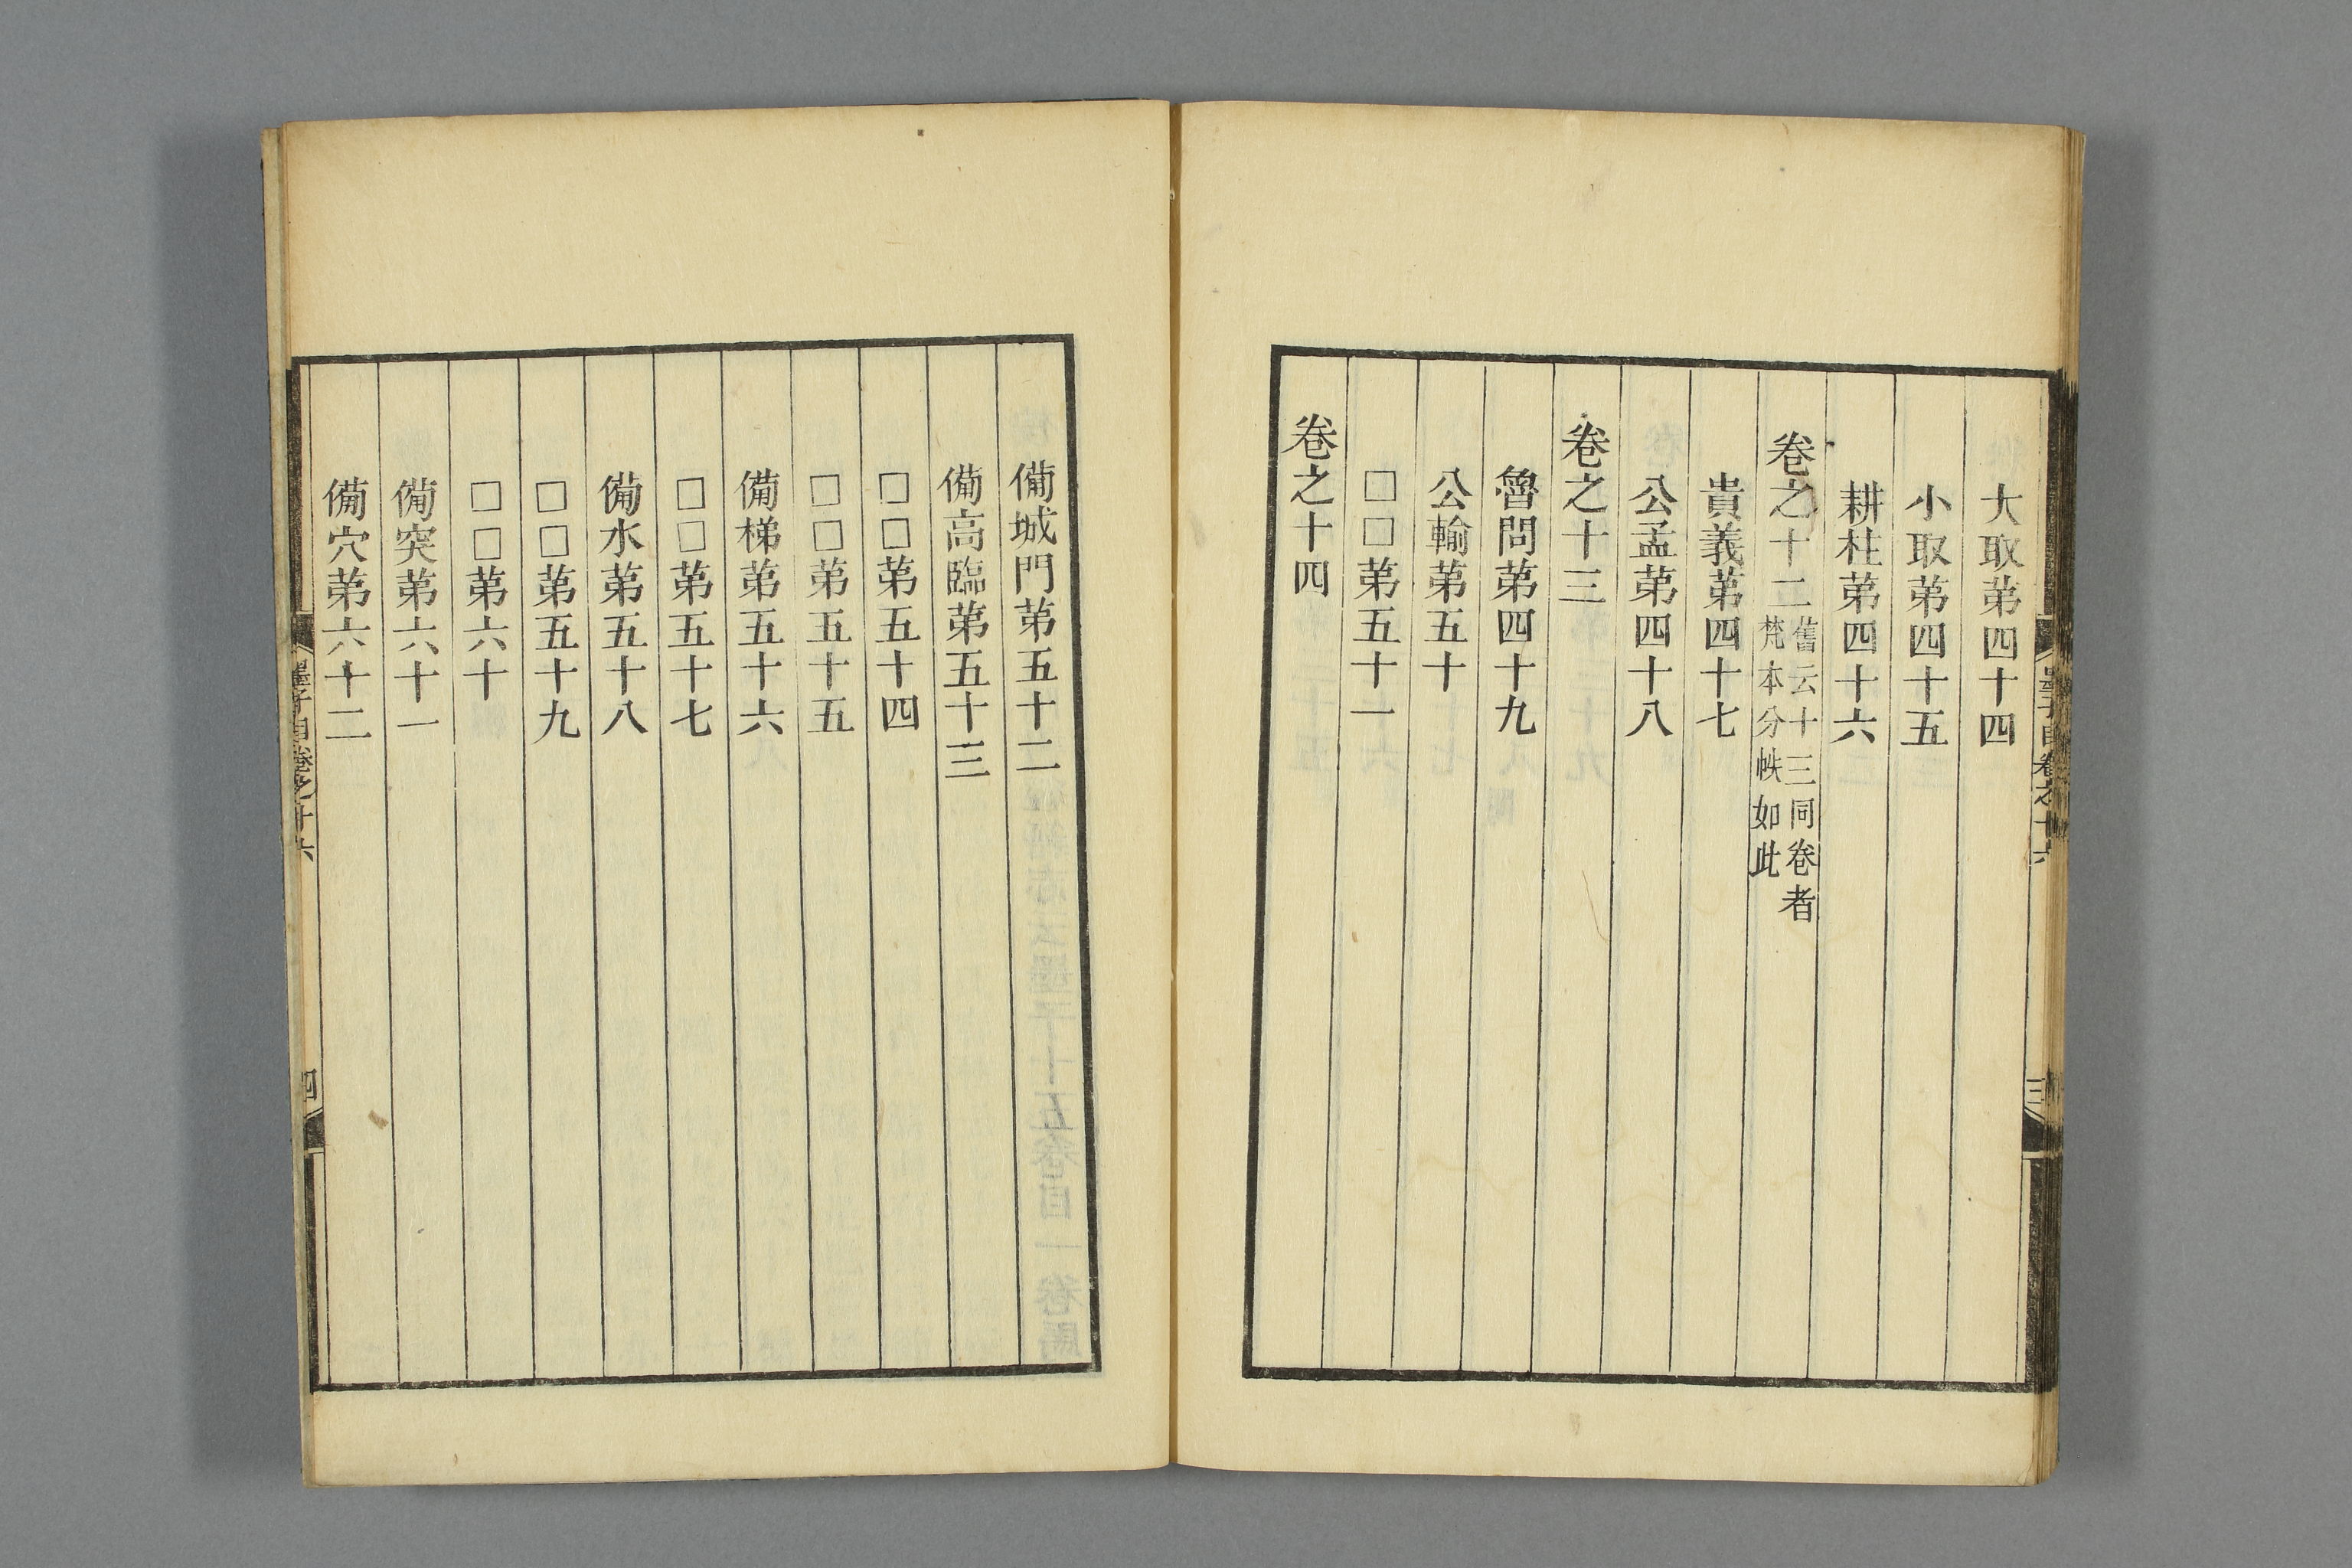 大取苐四十四
小取苐四十五
耕柱苐四十六
卷之十二舊云十三同卷者
梵本分帙如此
貴義苐四十七
公孟苐四十八
卷之十三
魯問苐四十九
公輸苐五十
□□苐五十一
卷之十四
備城門苐五十二
備高臨苐五十三
□□苐五十四
□□苐五十五
備梯苐五十六
□□苐五十七
備水苐五十八
□□苐五十九
□□苐六十
備突苐六十一
備穴苐六十二
墨子目卷之十六
四